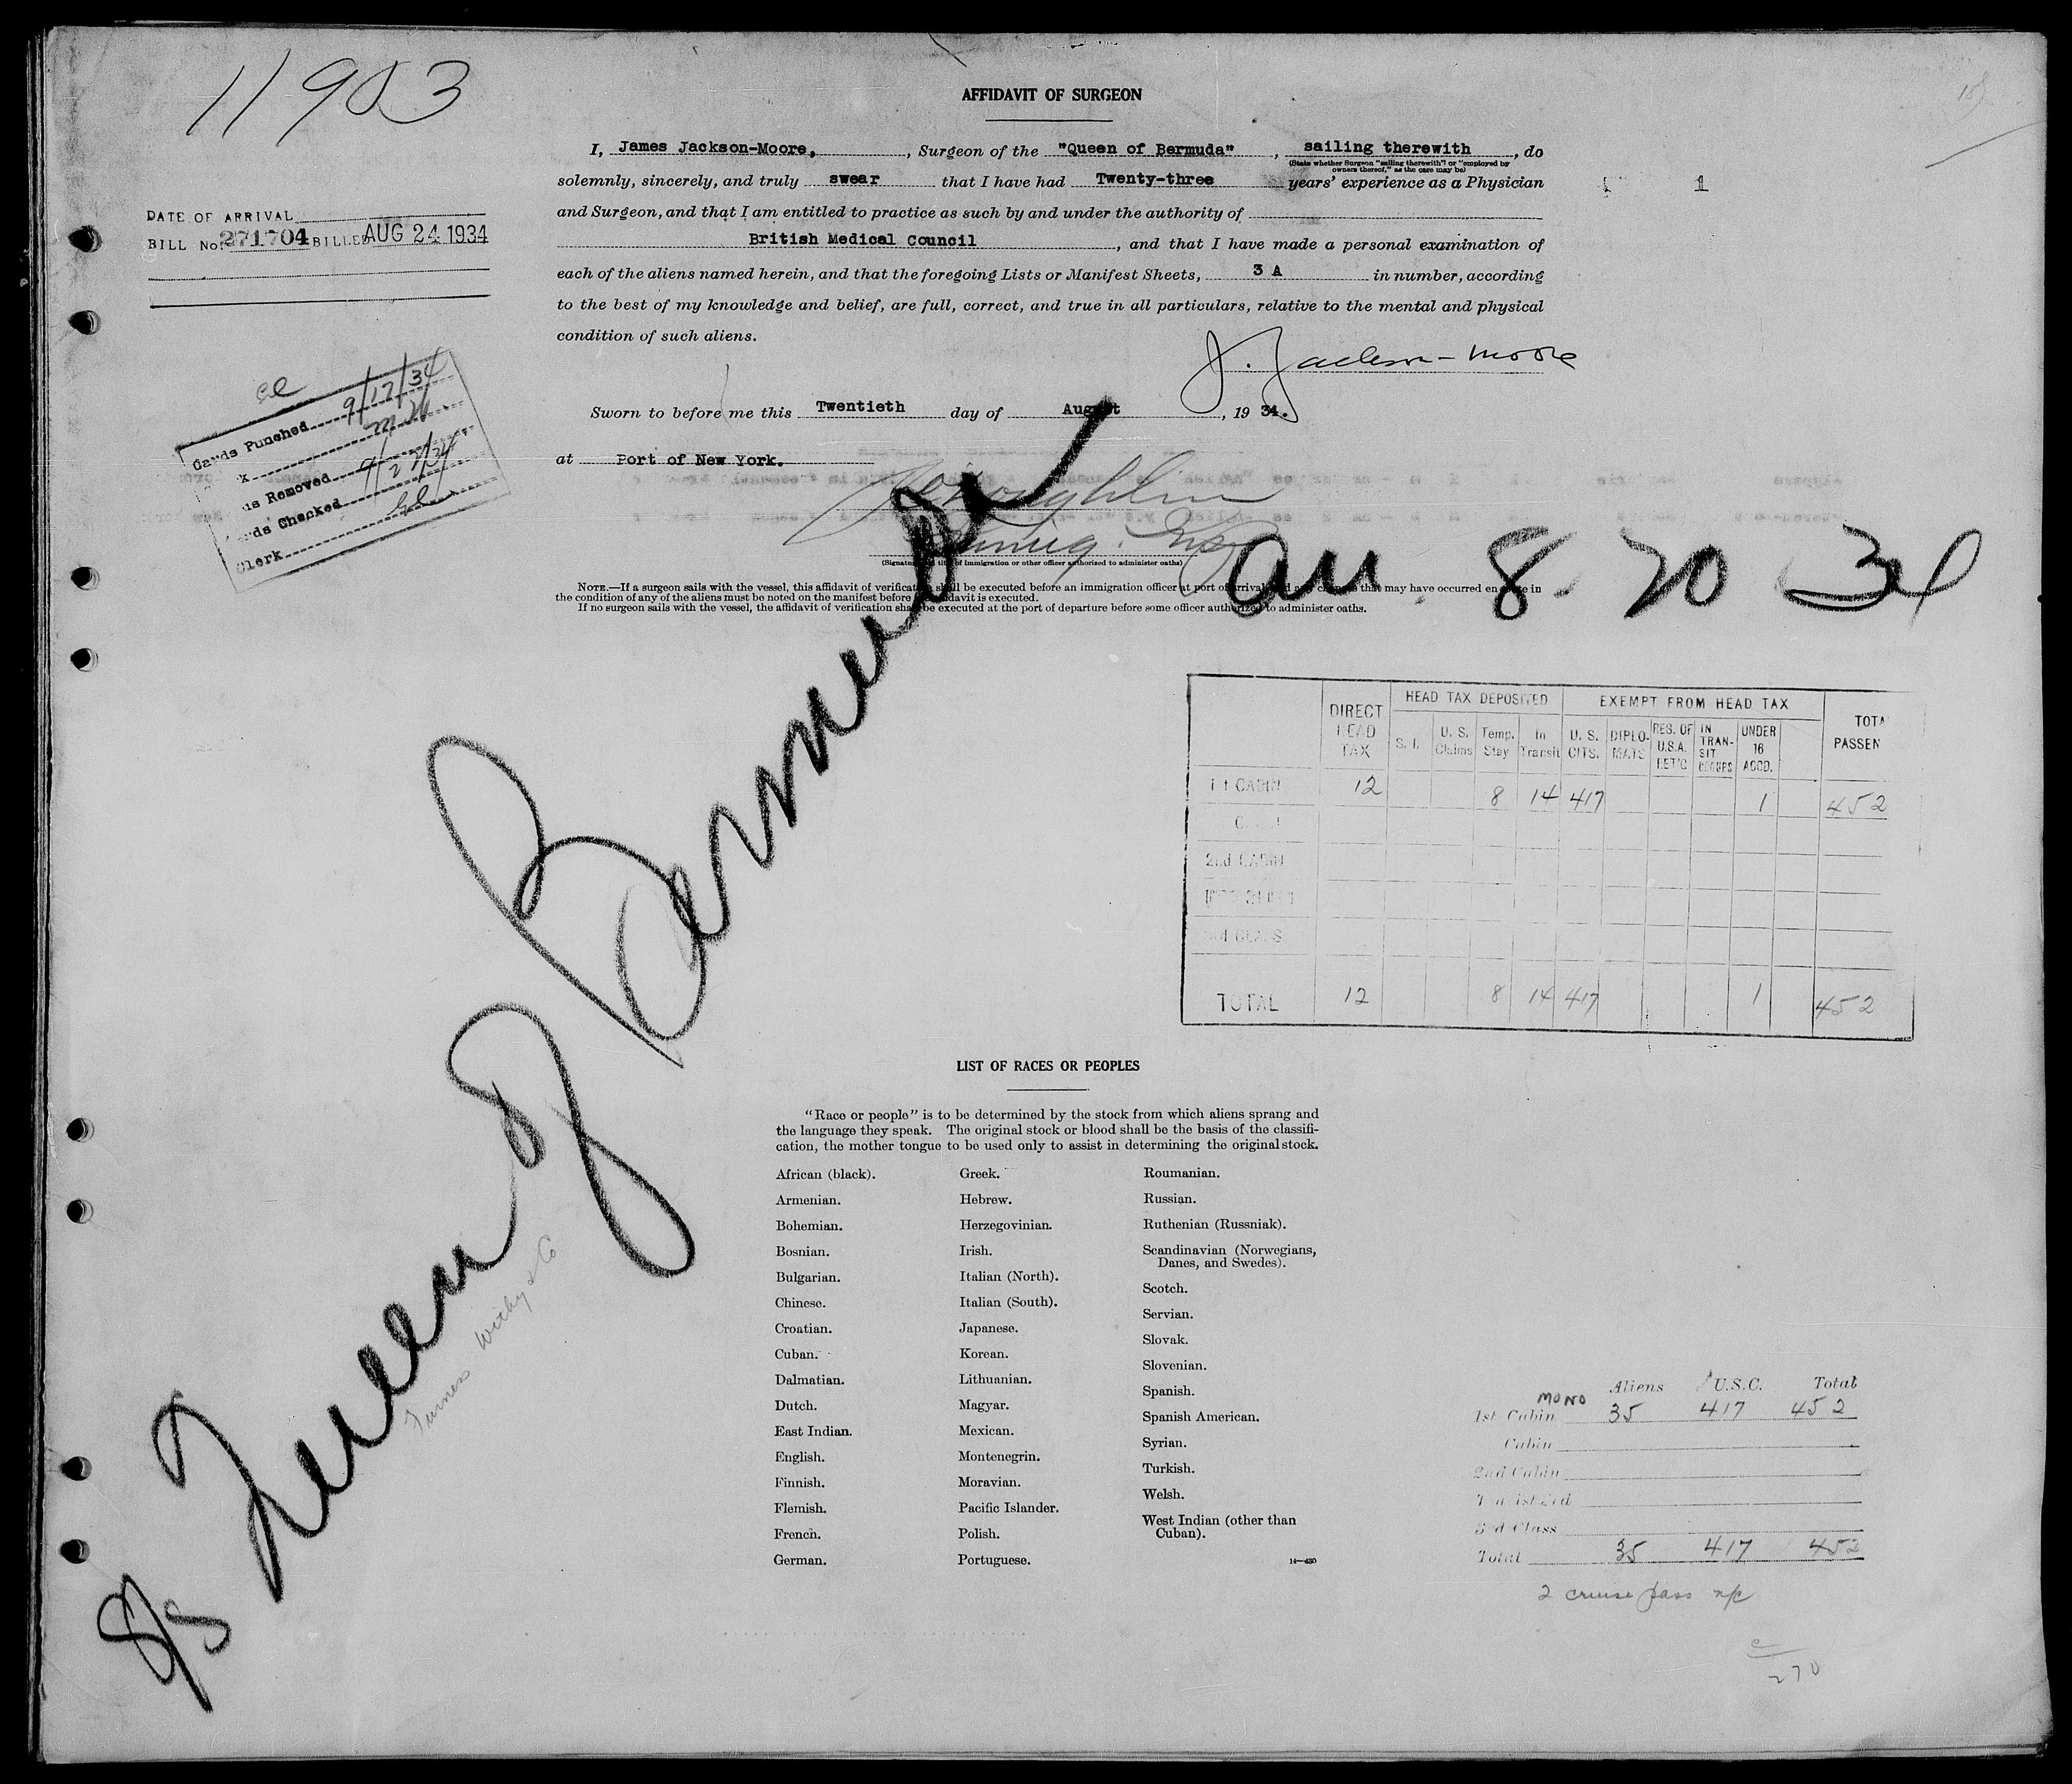 11903
AFFIDAVIT OF SURGEON
I, James Jackson-Moore, , Surgeon of the "Queen of Bermuda" , sailing therewith , do
(State whether Surgeon "sailing therewith" or "employed by
owners thereof," as the case may be)
solemnly, sincerely, and truly swear that I have had Twenty-three years' experience as a Physician
1
and Surgeon, and that I am entitled to practice as such by and under the authority of
British Medical Council , and that I have made a personal examination of
each of the aliens named herein, and that the foregoing Lists or Manifest Sheets, 3 A in number, according
to the best of my knowledge and belief, are full, correct, and true in all particulars, relative to the mental and physical
condition of such aliens.
J. Jackson-Moore
Sworn to before me this Twentieth day of August , 19 34.
at Port of New York.
(Signature and title of immigration or other officer authorized to administer oaths)
NOTE.—If a surgeon sails with the vessel, this affidavit of verification shall be executed before an immigration officer at port of arrival and any changes that may have occurred en route in
the condition of any of the aliens must be noted on the manifest before the affidavit is executed.
If no surgeon sails with the vessel, the affidavit of verification shall be executed at the port of departure before some officer authorized to administer oaths.
DATE OF ARRIVAL
BILL No. 271704 BILLED AUG 24 1934
Cards Punched 9/17/34
Removed 9/27/34
Cards Checked
Clerk
arr 8-20 34
S/S Queen of Bermuda
Furness Withy & Co
DIRECT HEAD TAX
HEAD TAX DEPOSITED
EXEMPT FROM HEAD TAX
TOTA
PASSEN
S. I.
U. S. Claims
Temp. Stay
In Transit
U. S. CITS.
DIPLO-MATS
RES. OF U.S.A. RET'G
IN TRAN-SIT GROUPS
UNDER 16 ACCD.
1st CABIN 12 8 14 417 1 452
2nd CABIN
TOTAL 12 8 14 417 1 452
LIST OF RACES OR PEOPLES
"Race or people" is to be determined by the stock from which aliens sprang and
the language they speak. The original stock or blood shall be the basis of the classifi-
cation, the mother tongue to be used only to assist in determining the original stock.
African (black).
Armenian.
Bohemian.
Bosnian.
Bulgarian.
Chinese.
Croatian.
Cuban.
Dalmatian.
Dutch.
East Indian.
English.
Finnish.
Flemish.
French.
German.
Greek.
Hebrew.
Herzegovinian.
Irish.
Italian (North).
Italian (South).
Japanese.
Korean.
Lithuanian.
Magyar.
Mexican.
Montenegrin.
Moravian.
Pacific Islander.
Polish.
Portuguese.
Roumanian.
Russian.
Ruthenian (Russniak).
Scandinavian (Norwegians,
Danes, and Swedes).
Scotch.
Servian.
Slovak.
Slovenian.
Spanish.
Spanish American.
Syrian.
Turkish.
Welsh.
West Indian (other than
Cuban).
Aliens U.S.C. Total
MONO
1st Cabin 35 417 452
Cabin
2nd Cabin
3rd Class
Total 35 417 452
2 cruise pass n/c
270